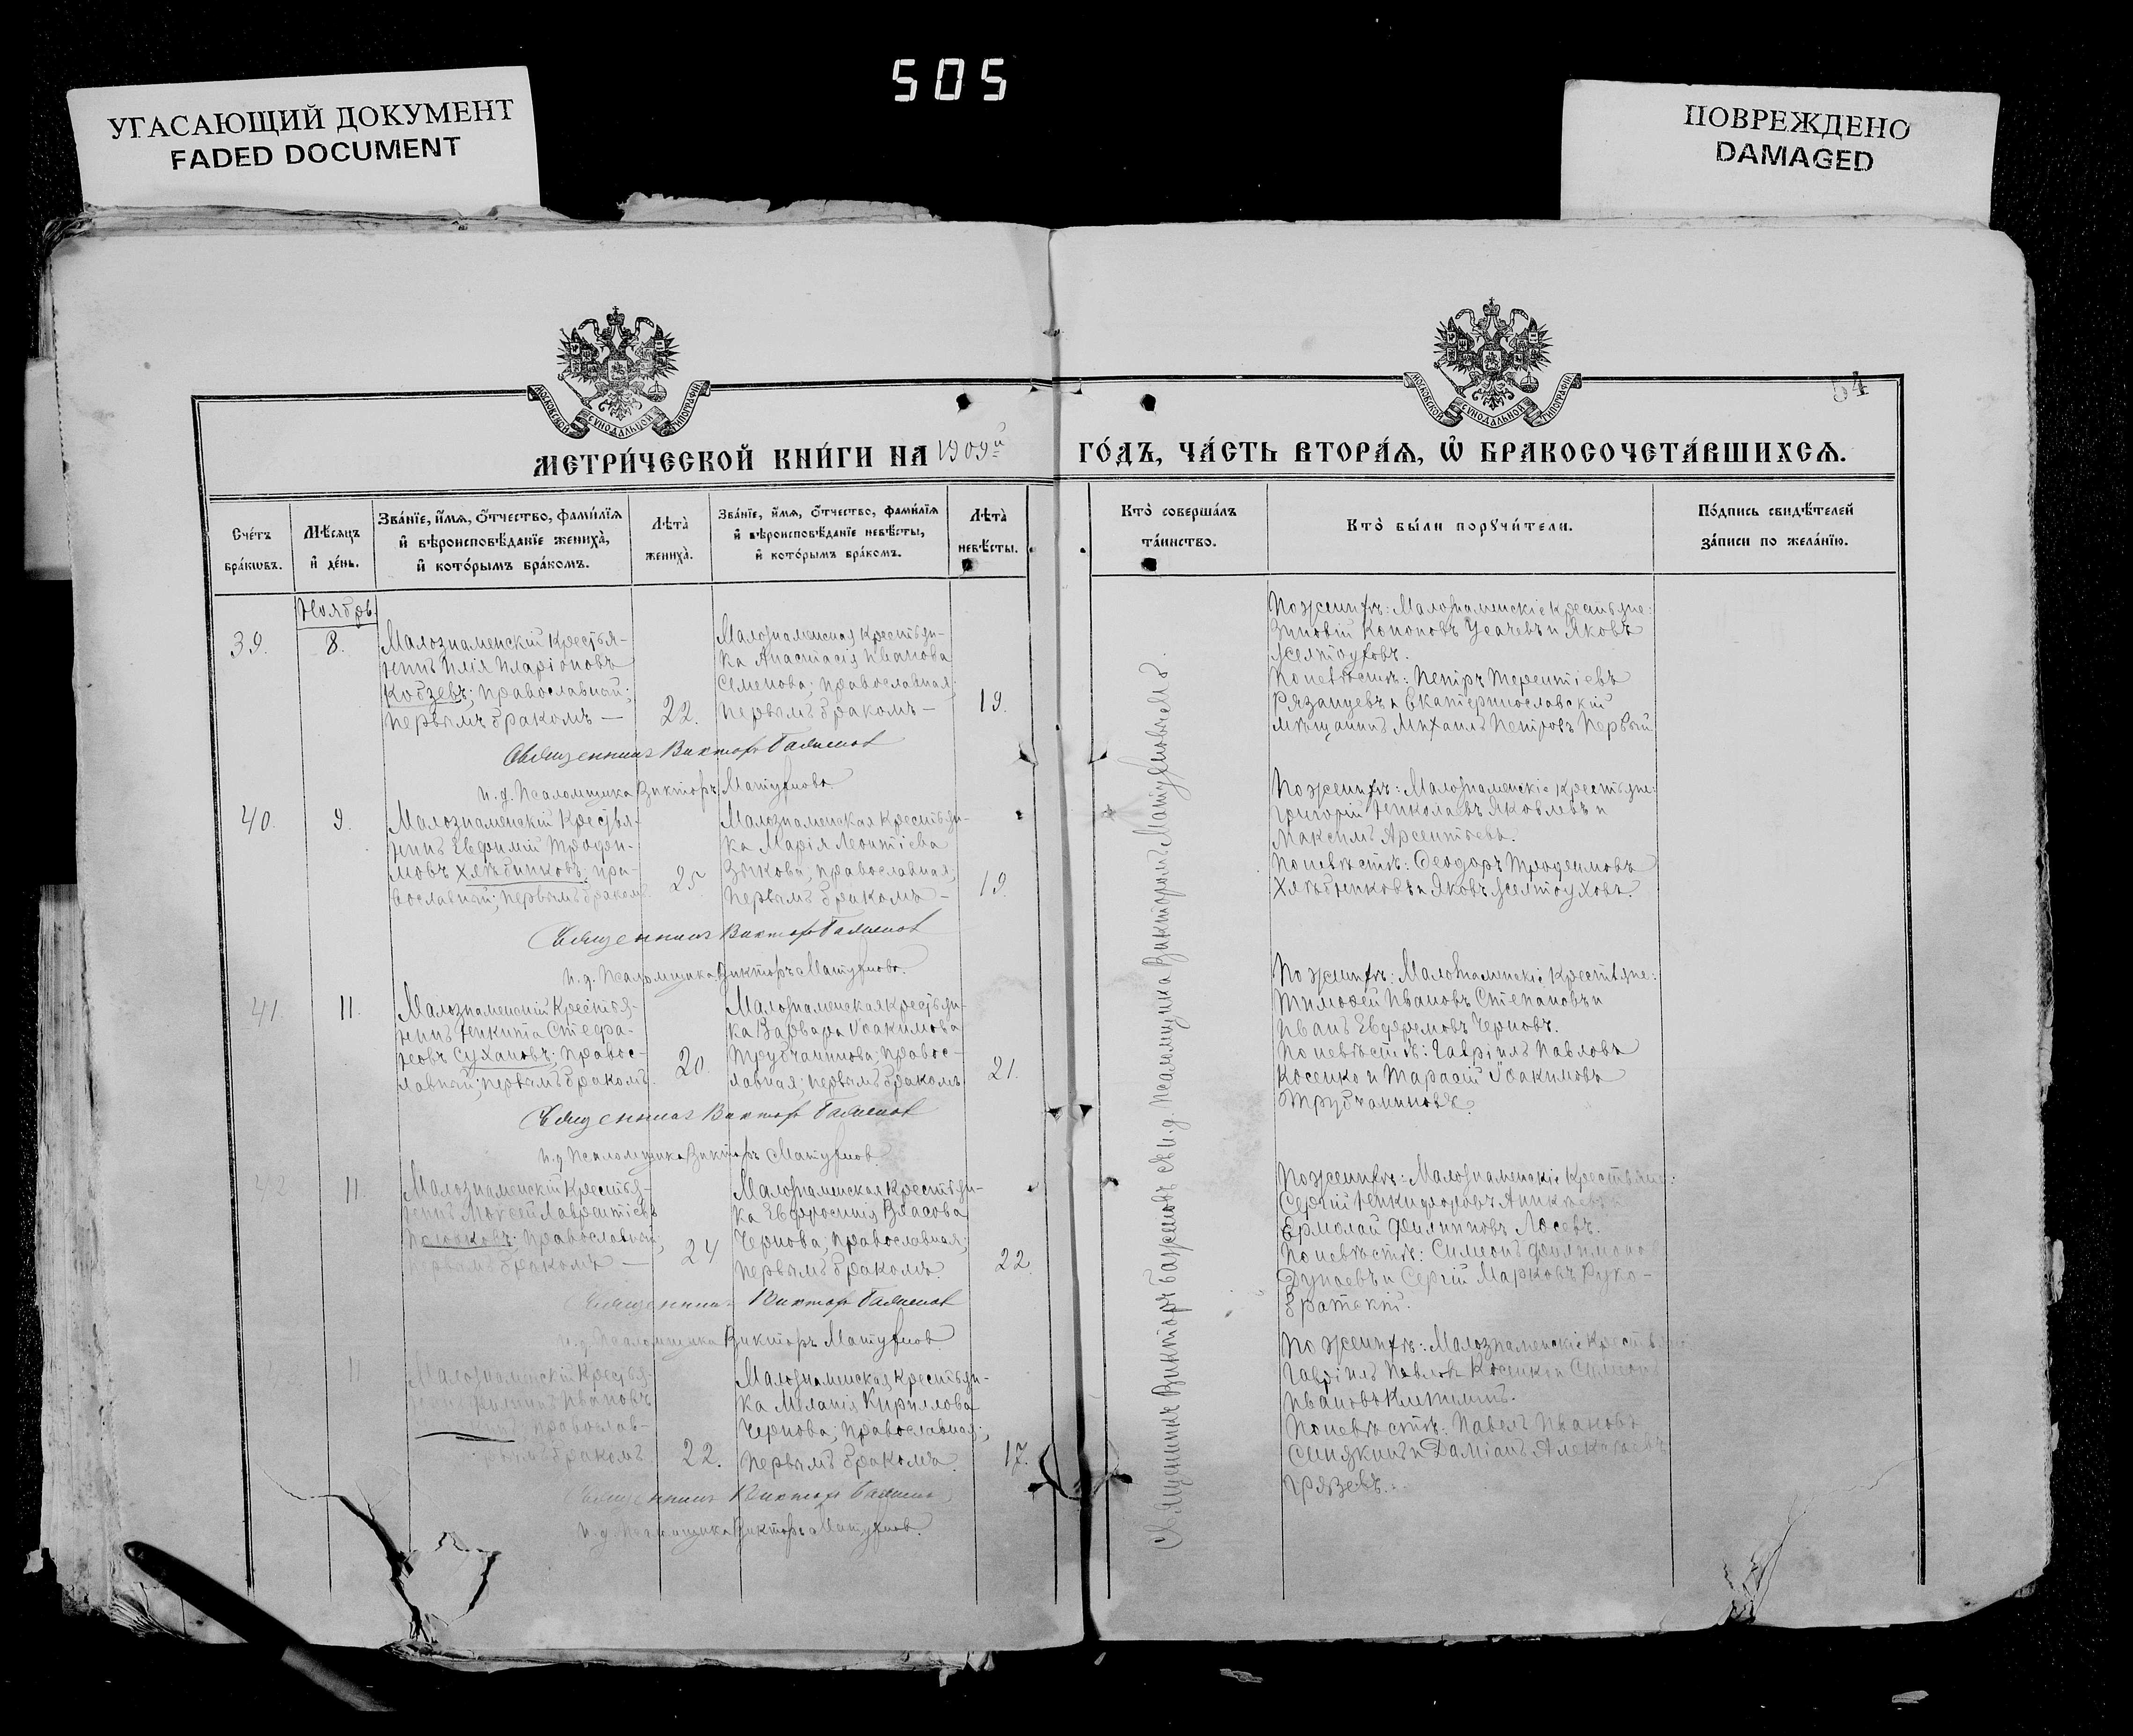 505
УГАСАЮЩИЙ ДОКУМЕНТ
FADED DOCUMENT
ПОВРЕЖДЕНО
DAMAGED
МОСКОВСКОЙ СѴНОДАЛЬНОЙ ТИПОГРАФІИ
МОСКОВСКОЙ СѴНОДАЛЬНОЙ ТИПОГРАФІИ
54
МЕТРИ́ЧЕСКОЙ КНИ́ГИ НА 1909й ГО́ДЪ, ЧА́СТЬ ВТОРА́Я, Ѽ БРАКОСОЧЕТА́ВШИХСЯ.
Сче́тъ
бра́кѡвъ.
Мѣ́сяцъ
и҆ де́нь.
Зва́нїе, и҆́мя, ѻ҆́тчество, фами́лїя
и҆ вѣроисповѣ́данїе жениха̀,
и҆ кото́рымъ бра́комъ.
Лѣта̀
жениха̀.
Зва́нїе, и҆́мя, ѻ҆́тчество, фами́лїя
и҆ вѣроисповѣ́данїе невѣ́сты,
и҆ кото́рымъ бра́комъ.
Лѣта̀
невѣ́сты.
Кто̀ соверша́лъ
та́инство.
Кто̀ бы́ли порꙋчи́тели.
По́дпись свидѣ́телей
за́писи по жела́нїю.
Ноябрь.
39.
8.
Малознаменскій крестья-
нинъ Илія Иларіоновъ
Кобзевъ; православный;
первымъ бракомъ —
22.
Малознаменская крестьян-
ка Анастасія Иванова
Семенова; православная;
первымъ бракомъ —
19.
По женихѣ: Малознаменскіе крестьяне:
Зиновій Кононовъ Усачевъ и Яковъ
Желтоуховъ.
По невѣстѣ: Петръ Терентіевъ
Рязанцевъ и Екатеринославскій
мѣщанинъ Михаилъ Петровъ Первый
Священникъ Виктор
и. д. Псаломщика Викторъ Матуфновъ.
40.
9.
Малознаменскій крестья-
нинъ Евфимій Трофи-
мовъ Хлѣбниковъ; пра-
вославный; первымъ бракомъ.
25.
Малознаменская крестьян-
ка Марія Леонтіева
Зыкова; православная;
первымъ бракомъ —
19.
По женихѣ: Малознаменскіе крестьяне:
Григорій Николаевъ Яковлевъ и
Максимъ Арсентьевъ.
По невѣстѣ: Феодоръ Трофимовъ
Хлѣбниковъ и Яковъ Желтоуховъ.
Священникъ Виктор
и. д. Псаломщика Викторъ Матуфновъ.
41.
11.
Малознаменскій крестья-
нинъ Никита Стефа-
новъ Сухановъ; правос-
лавный; первымъ бракомъ.
20.
Малознаменская крестьян-
ка Варвара Іоакимова
Трубчанинова; правос-
лавная; первымъ бракомъ
21.
По женихѣ: Малознаменскіе крестьяне:
Тимофей Ивановъ Степановъ и
Иванъ Ефремовъ Черновъ.
По невѣстѣ: Гавріилъ Павловъ
Косенко и Тарасій Іоакимовъ
Трубчаниновъ.
Священникъ Виктор
и. д. Псаломщика Викторъ Матуфновъ.
42
11.
Малознаменскій крестья-
нинъ Моисей Лаврентіевъ
православный;
первымъ бракомъ —
24
Малознаменская крестьян-
ка Евфросинія Власова
Чернова; православная;
первымъ бракомъ.
22.
По женихѣ: Малознаменскіе крестьяне:
Сергій Никифоровъ
Ермолай Филипповъ Лосевъ.
По невѣстѣ: Симеонъ Филимонов
Дунаевъ и Сергій Марковъ Руко-
братскій.
Священникъ Виктор
и. д. Псаломщика Викторъ Матуфновъ.
11
Малознаменскій крестья-
нинъ Филиппъ Ивановъ
православ-
первымъ бракомъ
22.
Малознаменская крестьян-
ка Меланія Кириллова
Чернова; православная;
первымъ бракомъ.
17.
По женихѣ: Малознаменскіе крестьяне
Гавріилъ Павловъ Косенко и Симеонъ
Ивановъ
По невѣстѣ: Павелъ Ивановъ
Синякинъ и Даміанъ Алексѣевъ
Грязевъ.
Священникъ Виктор
и. д. Псаломщика Викторъ Матуфновъ.
Священникъ Викторъ съ и. д. Псаломщика Викторомъ Матуфновымъ.